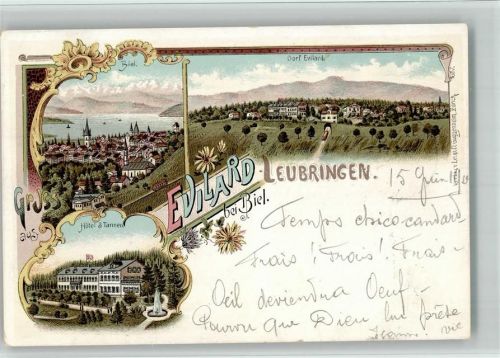 Biel.
Dorf Evilard.
Gruss aus
EVILARD-LEUBRINGEN.
bei Biel.
Hôtel 3 Tannen
15 Juin
Temps chico-candard
Frais! Frais! Frais-
Oeil deviendra Oeuf-
Pourvu que Dieu lui prête
vie